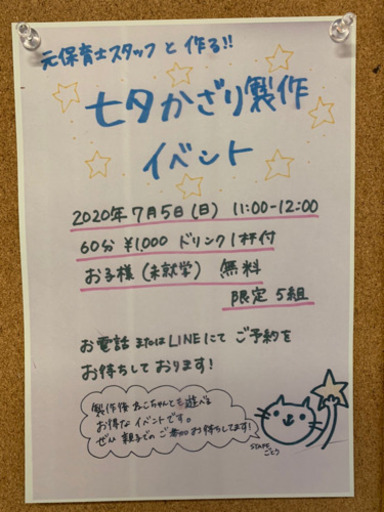 元保育士スタッフ と 作る!!
七夕かざり製作
イベント
2020年 7月5日(日) 11:00-12:00
60分 ¥1,000 ドリンク1杯付
お子様(未就学) 無料
限定 5組
お電話 またはLINEにて ご予約を
お待ちしております!
製作後 ねこちゃんとも遊べる
お得なイベントです。
ぜひ 親子でのご参加お待ちしてます!
STAFF
ごとう